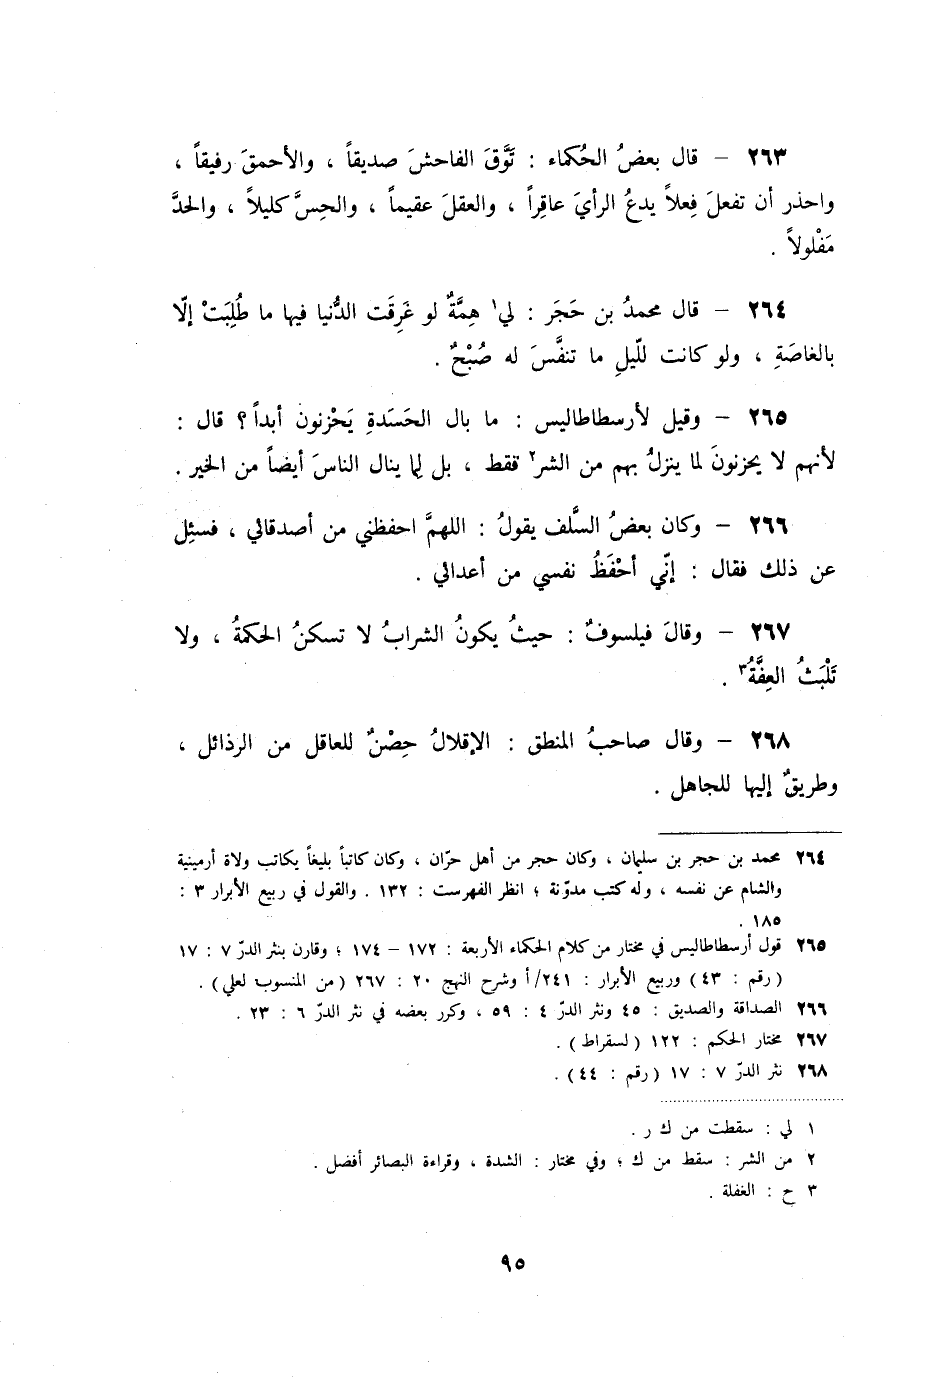 ٢٦٣ – قال بعضُ الحُكماء : تَوَّقَ الفاحشَ صديقاً ، والأحمقَ رفيقاً ،
واحذر أن تفعلَ فِعلاً يدعُ الرأيَ عاقِراً ، والعقلَ عقيماً ، والحِسَّ كليلاً ، والحدَّ
مَفْلولاً .
٢٦٤ – قال محمدُ بن حَجَر : لي١ هِمَّةٌ لو غَرِقَت الدُّنيا فيها ما طُلِبَتْ إلّا
بالغاصَةِ ، ولو كانت للّيلِ ما تنفَّسَ له صُبْحٌ .
٢٦٥ – وقيل لأرسطاطاليس : ما بال الحَسَدةِ يَحْزنون أبداً ؟ قال :
لأنهم لا يحزنونَ لما ينزلُ بهم من الشر٢ فقط ، بل لِما ينال الناسَ أيضاً من الخير .
٢٦٦ – وكان بعضُ السَّلف يقولُ : اللهمَّ احفظني من أصدقائي ، فسئِل
عن ذلك فقال : إنّي أحْفَظُ نفسي من أعدائي .
٢٦٧ – وقالَ فيلسوفٌ : حيثُ يكونُ الشرابُ لا تسكنُ الحكمةُ ، ولا
تَلْبَثُ العِفَّةُ٣ .
٢٦٨ – وقال صاحبُ المنطق : الإقلالُ حِصْنٌ للعاقل من الرذائل ،
وطريقٌ إليها للجاهل .
٢٦٤ محمد بن حجر بن سليمان ، وكان حجر من أهل حرّان ، وكان كاتباً بليغاً يكاتب ولاة أرمينية
والشام عن نفسه ، وله كتب مدوّنة ؛ انظر الفهرست : ١٣٢ . والقول في ربيع الأبرار ٣ :
١٨٥ .
٢٦٥ قول أرسطاطاليس في مختار من كلام الحكماء الأربعة : ١٧٢ – ١٧٤ ؛ وقارن بنثر الدرّ ٧ : ١٧
(رقم : ٤٣) وربيع الأبرار : ٢٤١/أ وشرح النهج ٢٠ : ٢٦٧ (من المنسوب لعلي) .
٢٦٦ الصداقة والصديق : ٤٥ ونثر الدرّ ٤ : ٥٩ ، وكرر بعضه في نثر الدرّ ٦ : ٢٣ .
٢٦٧ مختار الحكم : ١٢٢ (لسقراط) .
٢٦٨ نثر الدرّ ٧ : ١٧ (رقم : ٤٤) .
١ لي : سقطت من ك ر .
٢ من الشر : سقط من ك ؛ وفي مختار : الشدة ، وقراءة البصائر أفضل .
٣ ح : الغفلة .
٩٥